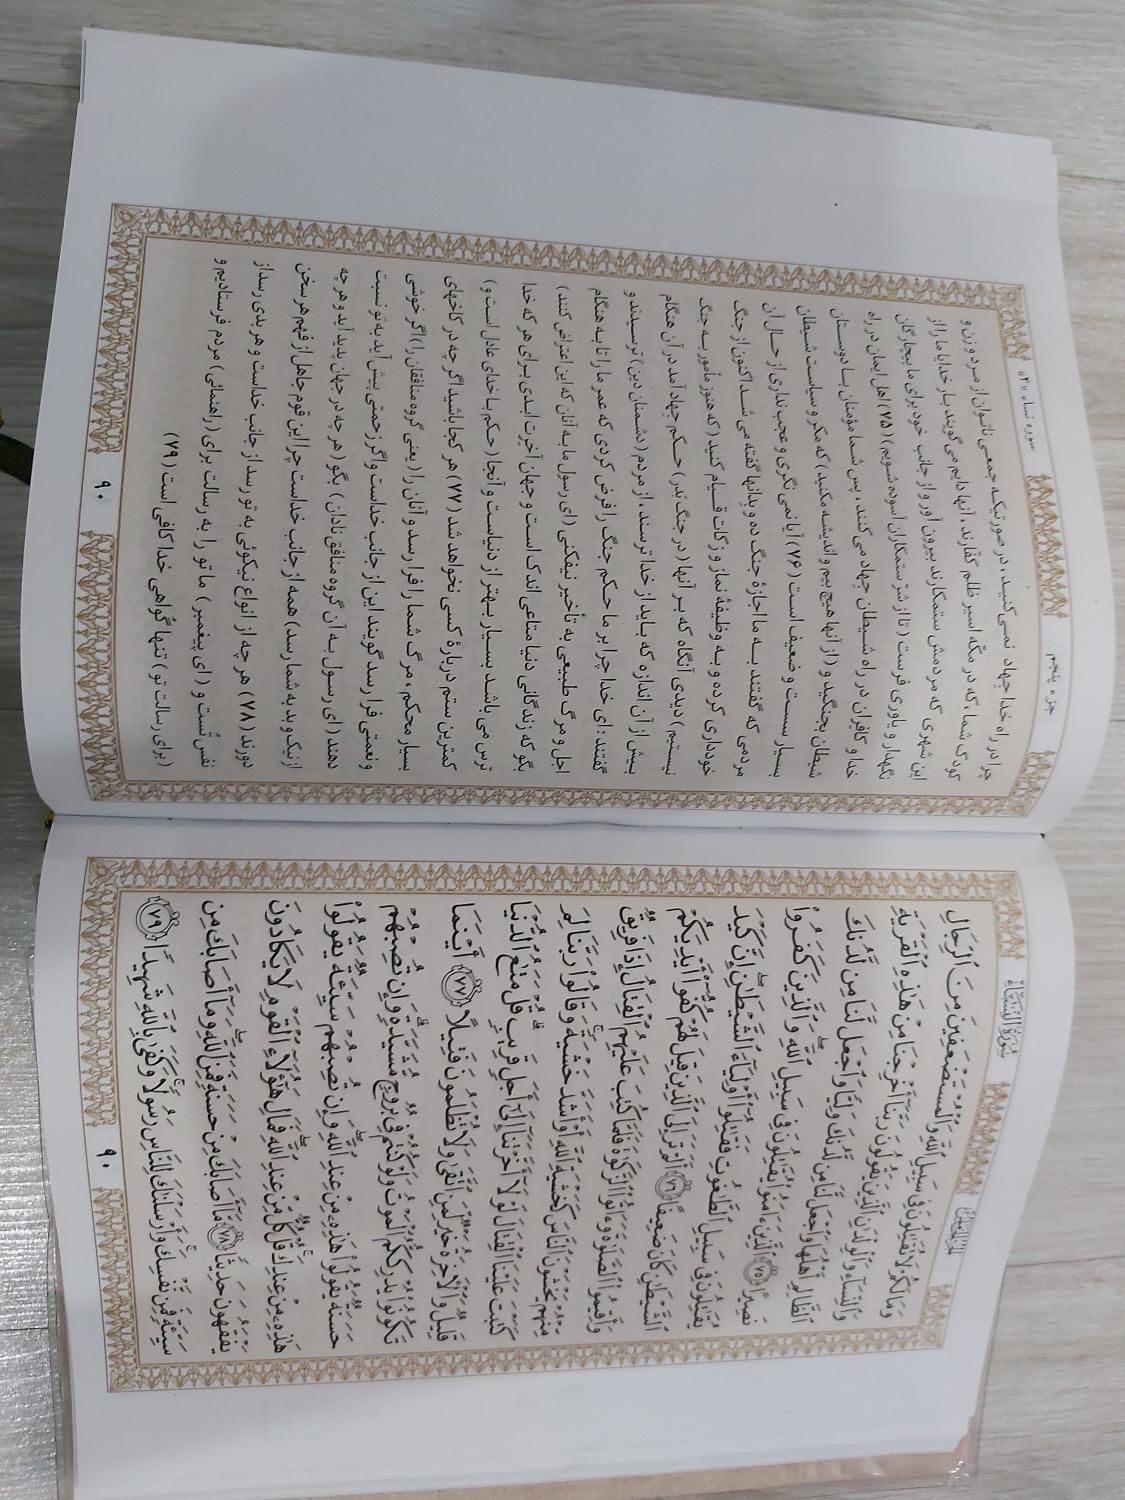 سُورَةُ النِّسَاء
الجزء الخامس
وَمَا لَكُمْ لَا تُقَاتِلُونَ فِي سَبِيلِ اللَّهِ وَالْمُسْتَضْعَفِينَ مِنَ الرِّجَالِ
وَالنِّسَاءِ وَالْوِلْدَانِ الَّذِينَ يَقُولُونَ رَبَّنَا أَخْرِجْنَا مِنْ هَذِهِ الْقَرْيَةِ
الظَّالِمِ أَهْلُهَا وَاجْعَل لَّنَا مِن لَّدُنكَ وَلِيًّا وَاجْعَل لَّنَا مِن لَّدُنكَ
نَصِيرًا ﴿٧٥﴾ الَّذِينَ آمَنُوا يُقَاتِلُونَ فِي سَبِيلِ اللَّهِ وَالَّذِينَ كَفَرُوا
يُقَاتِلُونَ فِي سَبِيلِ الطَّاغُوتِ فَقَاتِلُوا أَوْلِيَاءَ الشَّيْطَانِ إِنَّ كَيْدَ
الشَّيْطَانِ كَانَ ضَعِيفًا ﴿٧٦﴾ أَلَمْ تَرَ إِلَى الَّذِينَ قِيلَ لَهُمْ كُفُّوا أَيْدِيَكُمْ
وَأَقِيمُوا الصَّلَاةَ وَآتُوا الزَّكَاةَ فَلَمَّا كُتِبَ عَلَيْهِمُ الْقِتَالُ إِذَا فَرِيقٌ
مِّنْهُمْ يَخْشَوْنَ النَّاسَ كَخَشْيَةِ اللَّهِ أَوْ أَشَدَّ خَشْيَةً وَقَالُوا رَبَّنَا لِمَ
كَتَبْتَ عَلَيْنَا الْقِتَالَ لَوْلَا أَخَّرْتَنَا إِلَى أَجَلٍ قَرِيبٍ قُلْ مَتَاعُ الدُّنْيَا
قَلِيلٌ وَالْآخِرَةُ خَيْرٌ لِّمَنِ اتَّقَى وَلَا تُظْلَمُونَ فَتِيلًا ﴿٧٧﴾ أَيْنَمَا
تَكُونُوا يُدْرِككُّمُ الْمَوْتُ وَلَوْ كُنتُمْ فِي بُرُوجٍ مُّشَيَّدَةٍ وَإِن تُصِبْهُمْ
حَسَنَةٌ يَقُولُوا هَذِهِ مِنْ عِندِ اللَّهِ وَإِن تُصِبْهُمْ سَيِّئَةٌ يَقُولُوا
هَذِهِ مِنْ عِندِكَ قُلْ كُلٌّ مِّنْ عِندِ اللَّهِ فَمَالِ هَؤُلَاءِ الْقَوْمِ لَا يَكَادُونَ
يَفْقَهُونَ حَدِيثًا ﴿٧٨﴾ مَّا أَصَابَكَ مِنْ حَسَنَةٍ فَمِنَ اللَّهِ وَمَا أَصَابَكَ مِن
سَيِّئَةٍ فَمِن نَّفْسِكَ وَأَرْسَلْنَاكَ لِلنَّاسِ رَسُولًا وَكَفَى بِاللَّهِ شَهِيدًا ﴿٧٩﴾
٩٠
جزء پنجم
سوره نساء «۴»
چرا در راه خدا جهاد نمی‌کنید، در صورتیکه جمعی ناتوان از مرد و زن و
کودک شما، که در مکّه اسیر ظلم کفّارند، آنها دایم می‌گویند بار خدایا ما را از
این شهری که مردمش ستمکارند بیرون آور و از جانب خود برای ما بیچارگان
نگهدار و یاوری فرست (تا از شرّ ستمکاران آسوده شویم) (۷۵) اهل ایمان در راه
خدا و کافران در راه شیطان جهاد می‌کنند، پس شما مؤمنان با دوستان
شیطان بجنگید و (از آنها هیچ بیم و اندیشه مکنید) که مکر و سیاست شیطان
بسیار سست و ضعیف است (۷۶) آیا نمی‌نگری و عجب نداری از حال آن
مردمی که گفتند به ما اجازهٔ جنگ ده و بدانها گفته می‌شد اکنون از جنگ
خودداری کرده و به وظیفهٔ نماز و زکات قیام کنید (که هنوز مأمور به جنگ
نیستیم) دیدی آنگاه که بر آنها (در جنگ بدر) حکم جهاد آمد در آن هنگام
بیش از آن اندازه که باید از خدا ترسند، از مردم (دشمنان دین) ترسیدند و
گفتند: ای خدا چرا بر ما حکم جنگ را فرض کردی که عمر ما را تا به هنگام
اجل و مرگ طبیعی به تأخیر نیفکنی (ای رسول ما به آنان که این اعتراض کنند)
بگو که زندگانی دنیا متاعی اندک است و جهان آخرت ابدی برای هر که خدا
ترس می‌باشد بسیار بهتر از دنیاست و آنجا (حکم با خدای عادل است و)
کمترین ستم دربارهٔ کسی نخواهد شد (۷۷) هر کجا باشید اگر چه در کاخهای
بسیار محکم، مرگ شما را فرا رسد و آنان را (یعنی گروه منافقان را) اگر خوشی
و نعمتی فرا رسد گویند این از جانب خداست و اگر زحمتی پیش آید به تو نسبت
دهند (ای رسول به آن گروه منافق نادان) بگو (هر چه در جهان پدید آید و هر چه
از نیک و بد به شما رسد) همه از جانب خداست چرا این قوم جاهل از فهم هر سخن
دورند (۷۸) هر چه از انواع نیکوئی به تو رسد از جانب خداست و هر بدی رسد از
نفس تُست و (ای پیغمبر) ما تو را به رسالت برای (راهنمائی) مردم فرستادیم و
(برای رسالت تو) تنها گواهی خدا کافی است (۷۹)
۹۰